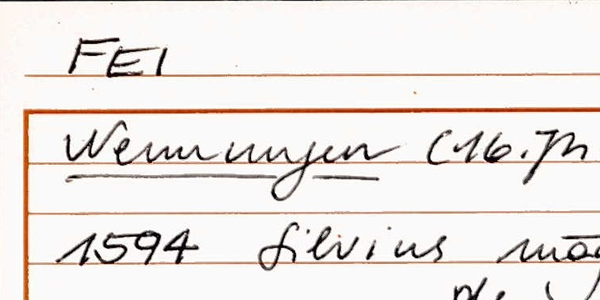 FEI
Wennungen (16. Jh
1594 Silvius